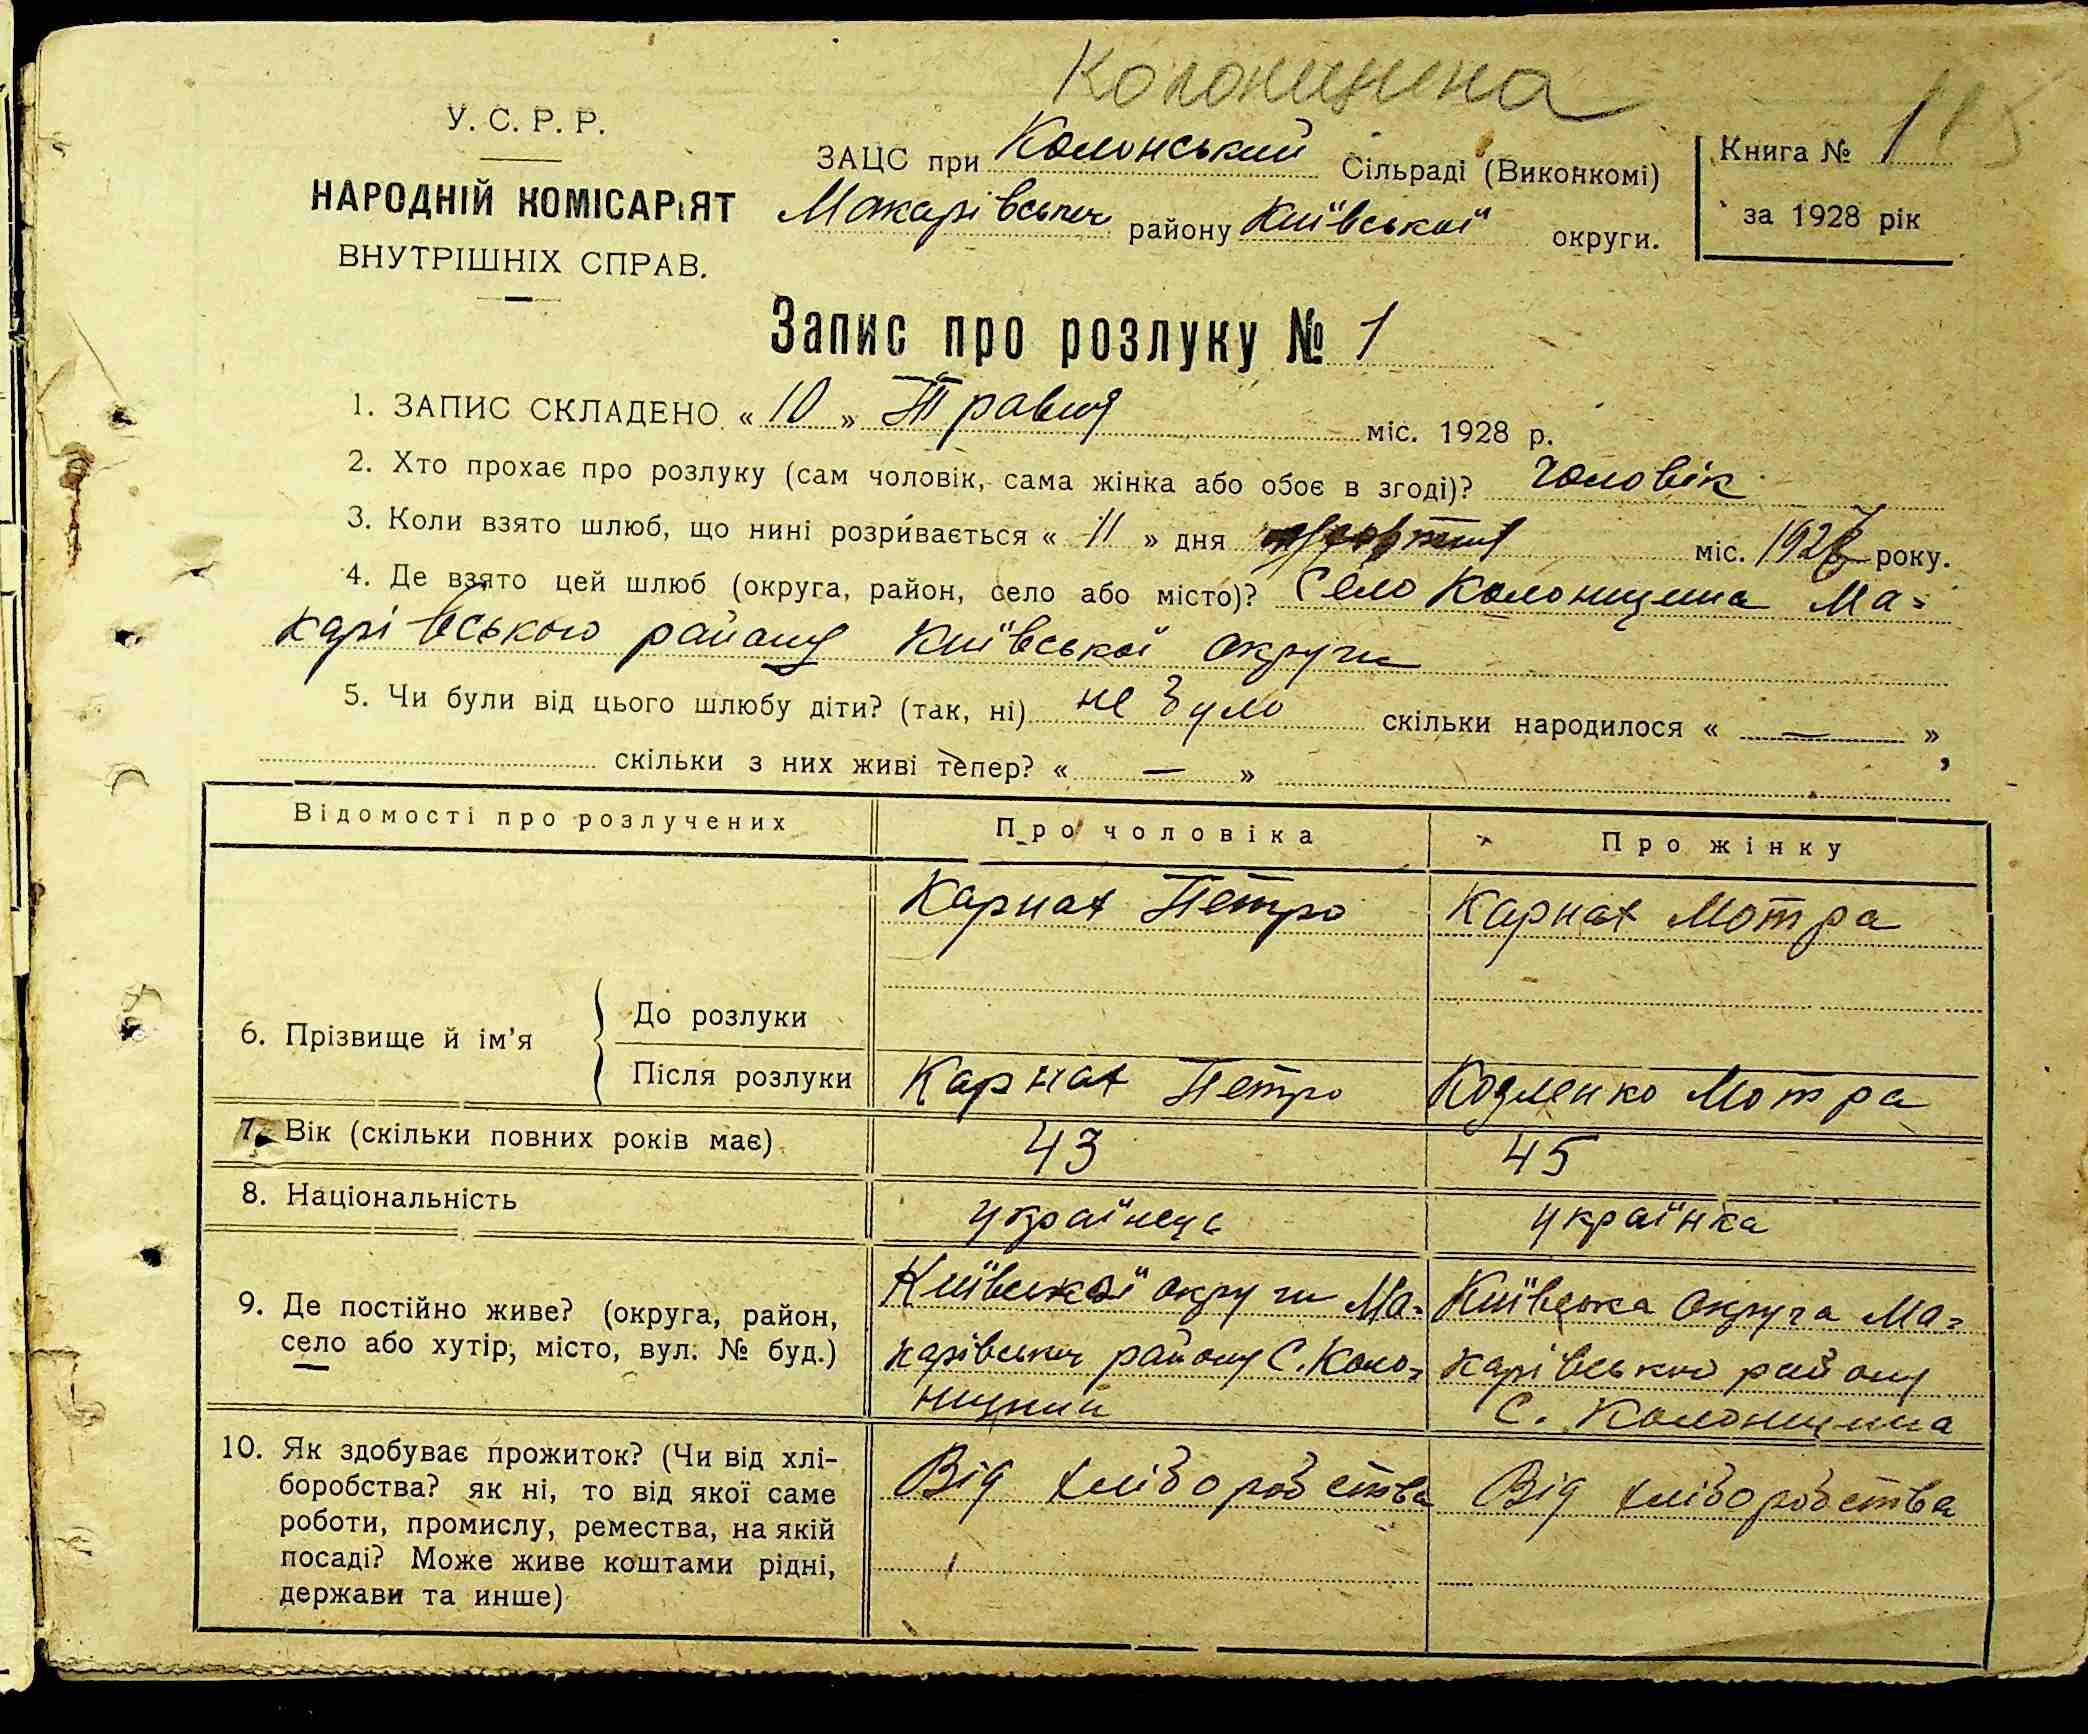 Колонщина
У. С. Р. Р.
НАРОДНІЙ КОМІСАРІЯТ
ВНУТРІШНІХ СПРАВ.
ЗАЦС при Колонський Сільраді (Виконкомі)
району Київської округи.
Книга № 1
за 1928 рік
Запис про розлуку № 1
1. ЗАПИС СКЛАДЕНО « 10 » Травня міс. 1928 р.
2. Хто прохає про розлуку (сам чоловік, сама жінка або обоє в згоді)? чоловік
3. Коли взято шлюб, що нині розривається « 11 » дня міс. року.
4. Де взято цей шлюб (округа, район, село або місто)? Село Колонщина Ма=
карівського району Київської округи
5. Чи були від цього шлюбу діти? (так, ні) не було скільки народилося « — »,
скільки з них живі тепер? « — »
Відомості про розлучених
Про чоловіка
Про жінку
6. Прізвище й ім'я
До розлуки
Карнах Петро
Карнах Мотра
Після розлуки
Карнах Петро
Козленко Мотра
7. Вік (скільки повних років має)
43
45
8. Національність
українець
українка
9. Де постійно живе? (округа, район,
село або хутір, місто, вул. № буд.)
Київської округи Ма=
району С. Коло=
Київська Округа Ма=
карівської району
С. Колонщина
10. Як здобуває прожиток? (Чи від хлі-
боробства? як ні, то від якої саме
роботи, промислу, ремества, на якій
посаді? Може живе коштами рідні,
держави та инше)
Від хліборобства
Від хліборобства